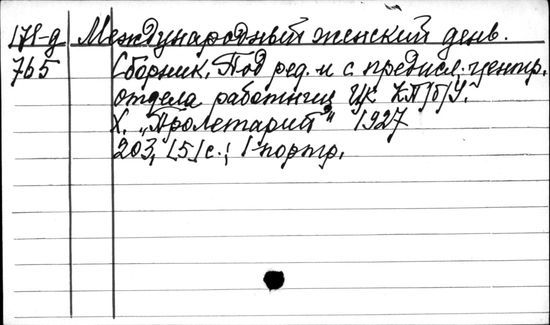 178-д Международный женский день.
765 Сборник. Под ред. и с предисл. центр.
отдела работниц ЦК КП/б/У.
Х. „Пролетарий" 1927
203, [5] с.; 1 портр.